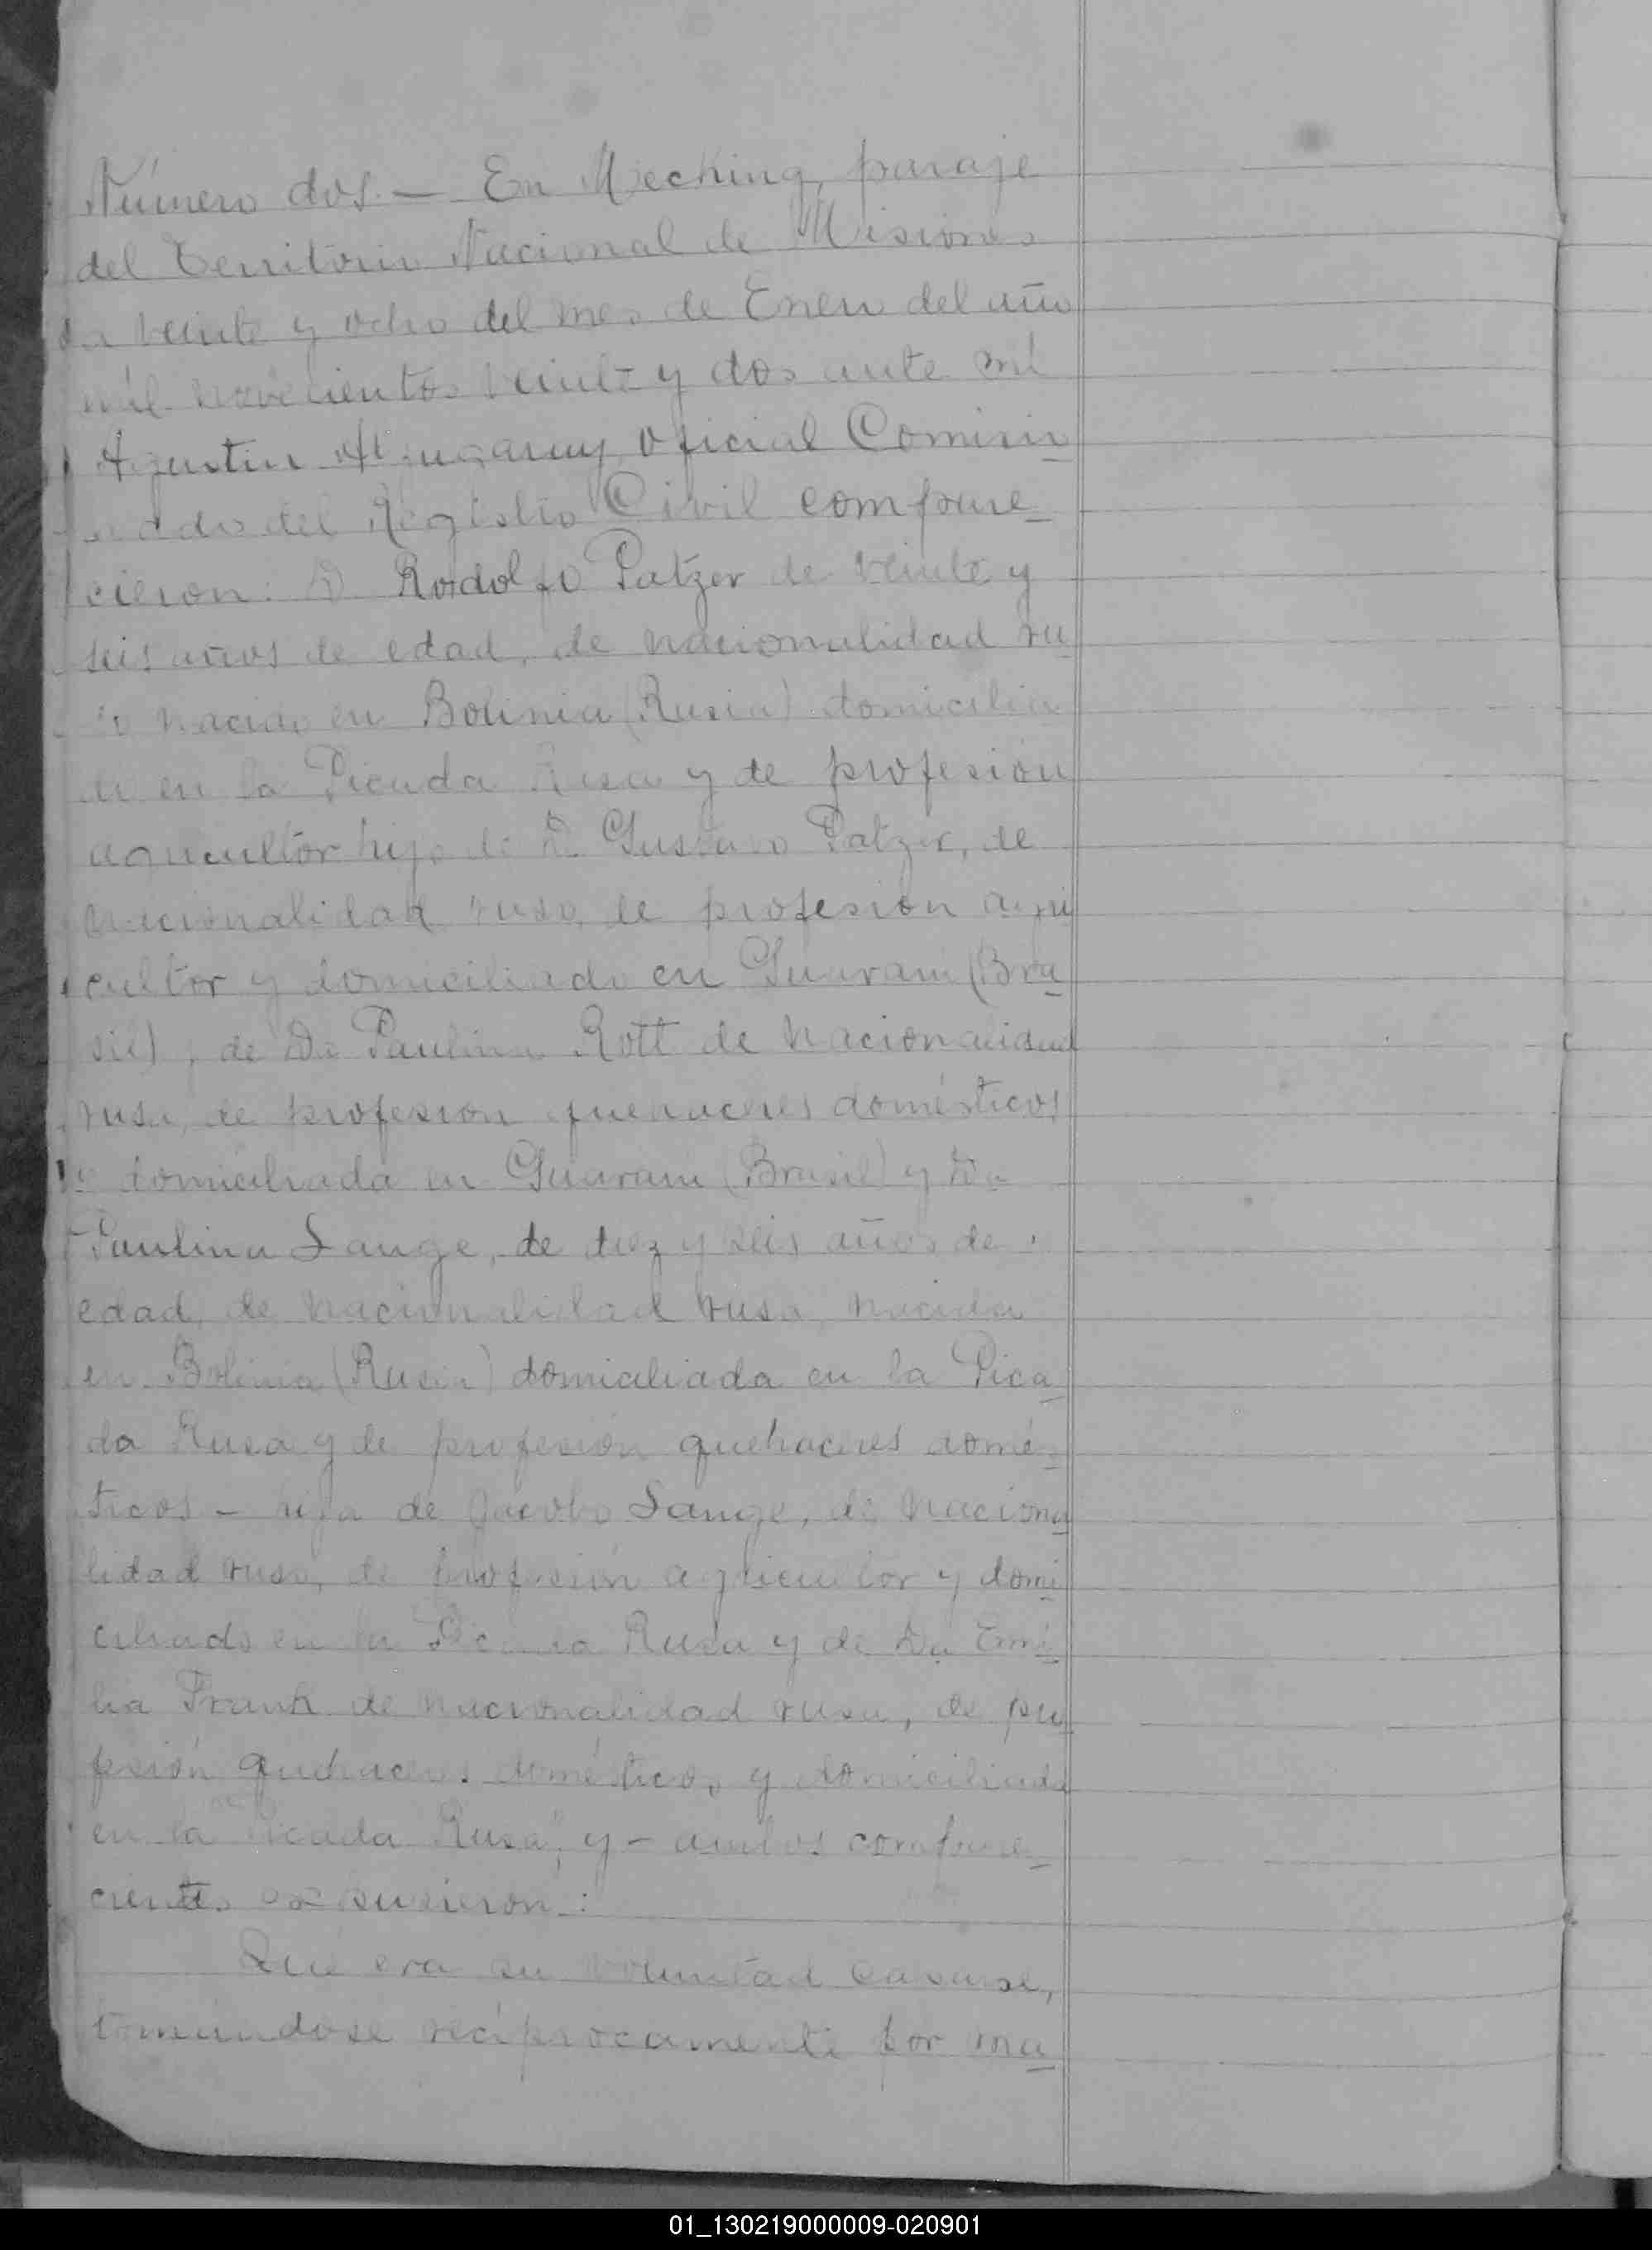 Número dos. — En Mecking, paraje
del Territorio Nacional de Misiones
a veinte y ocho del mes de Enero del año
mil novecientos veinte y dos ante mí
Agustin Oficial Comisio
nado del Registro Civil compare_
cieron: D. Rodolfo Patzer de veinte y
seis años de edad, de nacionalidad ru
so nacido en Bolinia (Rusia) domicilia
do en la Picada Rusa y de profesión
agricultor hijo de D. Gustavo Patzer, de
nacionalidad ruso, de profesion agri
cultor y domiciliado en Guarani (Bra
sil), de Da Paulina Rott de nacionalidad
rusa, de profesion quehaceres domésticos
y domiciliada en Guarani (Brasil) y Da
Paulina Lange, de diez y seis años de
edad, de nacionalidad rusa, nacida
en Bolinia (Rusia) domiciliada en la Pica
da Rusa y de profesión quehaceres domé_
ticos - hija de Jacobo Lange, de naciona
lidad ruso, de profesión agricultor y domi
ciliado en la Picada Rusa y de Da Emi
lia Frank de nacionalidad rusa, de pro
fesión quehaceres domésticos y domiciliada
en la "Picada Rusa", y - ambos compare_
cientes expusieron:
Que era su voluntad casarse,
tomándose recíprocamente por ma
01_130219000009-020901